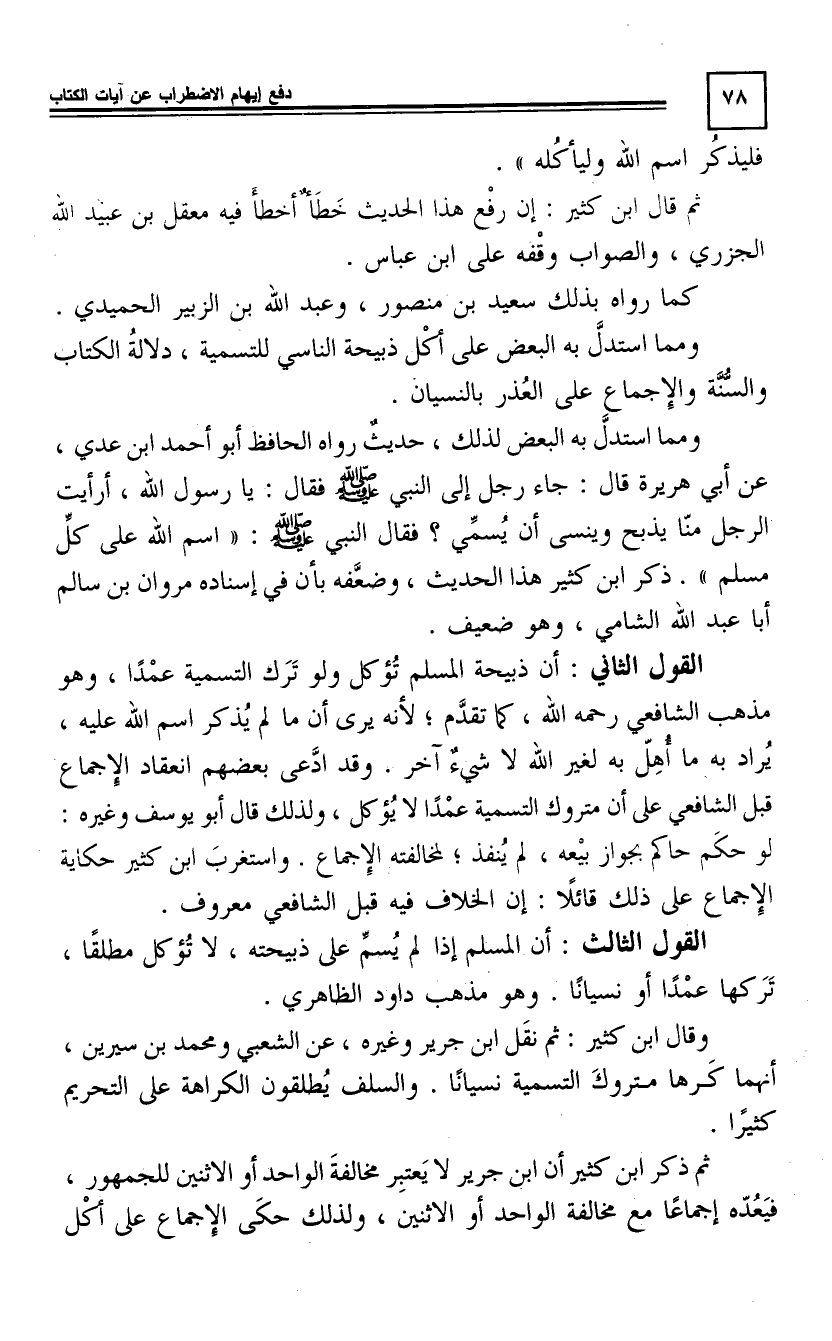 ٧٨
دفع إيهام الاضطراب عن آيات الكتاب
فليذكُر اسم الله وليأكُله » .
ثم قال ابن كثير : إن رفْع هذا الحديث خَطَأٌ أخطأَ فيه معقل بن عبيد الله
الجزري ، والصواب وقْفه على ابن عباس .
كما رواه بذلك سعيد بن منصور ، وعبد الله بن الزبير الحميدي .
ومما استدلَّ به البعض على أكْل ذبيحة الناسي للتسمية ، دلالةُ الكتاب
والسُّنَّة والإِجماع على العُذر بالنسيان .
ومما استدلَّ به البعض لذلك ، حديثٌ رواه الحافظ أبو أحمد ابن عدي ،
عن أبي هريرة قال : جاء رجل إلى النبي ﷺ فقال : يا رسول الله ، أرأيت
الرجل منّا يذبح وينسى أن يُسمِّي ؟ فقال النبي ﷺ : « اسم الله على كلِّ
مسلم » . ذكر ابن كثير هذا الحديث ، وضعَّفه بأن في إسناده مروان بن سالم
أبا عبد الله الشامي ، وهو ضعيف .
القول الثاني : أن ذبيحة المسلم تُؤكل ولو تَرَك التسمية عمْدًا ، وهو
مذهب الشافعي رحمه الله ، كما تقدَّم ؛ لأنه يرى أن ما لم يُذكر اسم الله عليه ،
يُراد به ما أُهِلّ به لغير الله لا شيءٌ آخر . وقد ادَّعى بعضهم انعقاد الإِجماع
قبل الشافعي على أن متروك التسمية عمْدًا لا يُؤكل ، ولذلك قال أبو يوسف وغيره :
لو حكَم حاكم بجواز بيْعه ، لم يُنفذ ؛ لمخالفته الإِجماع . واستغربَ ابن كثير حكاية
الإِجماع على ذلك قائلًا : إن الخلاف فيه قبل الشافعي معروف .
القول الثالث : أن المسلم إذا لم يُسمِّ على ذبيحته ، لا تُؤكل مطلقًا ،
تَرَكها عمْدًا أو نسيانًا . وهو مذهب داود الظاهري .
وقال ابن كثير : ثم نقَل ابن جرير وغيره ، عن الشعبي ومحمد بن سيرين ،
أنهما كَرها متروكَ التسمية نسيانًا . والسلف يُطلقون الكراهة على التحريم
كثيرًا .
ثم ذكر ابن كثير أن ابن جرير لا يَعتبِر مخالفةَ الواحد أو الاثنين للجمهور ،
فيَعُدّه إجماعًا مع مخالفة الواحد أو الاثنين ، ولذلك حكَى الإجماع على أكْل